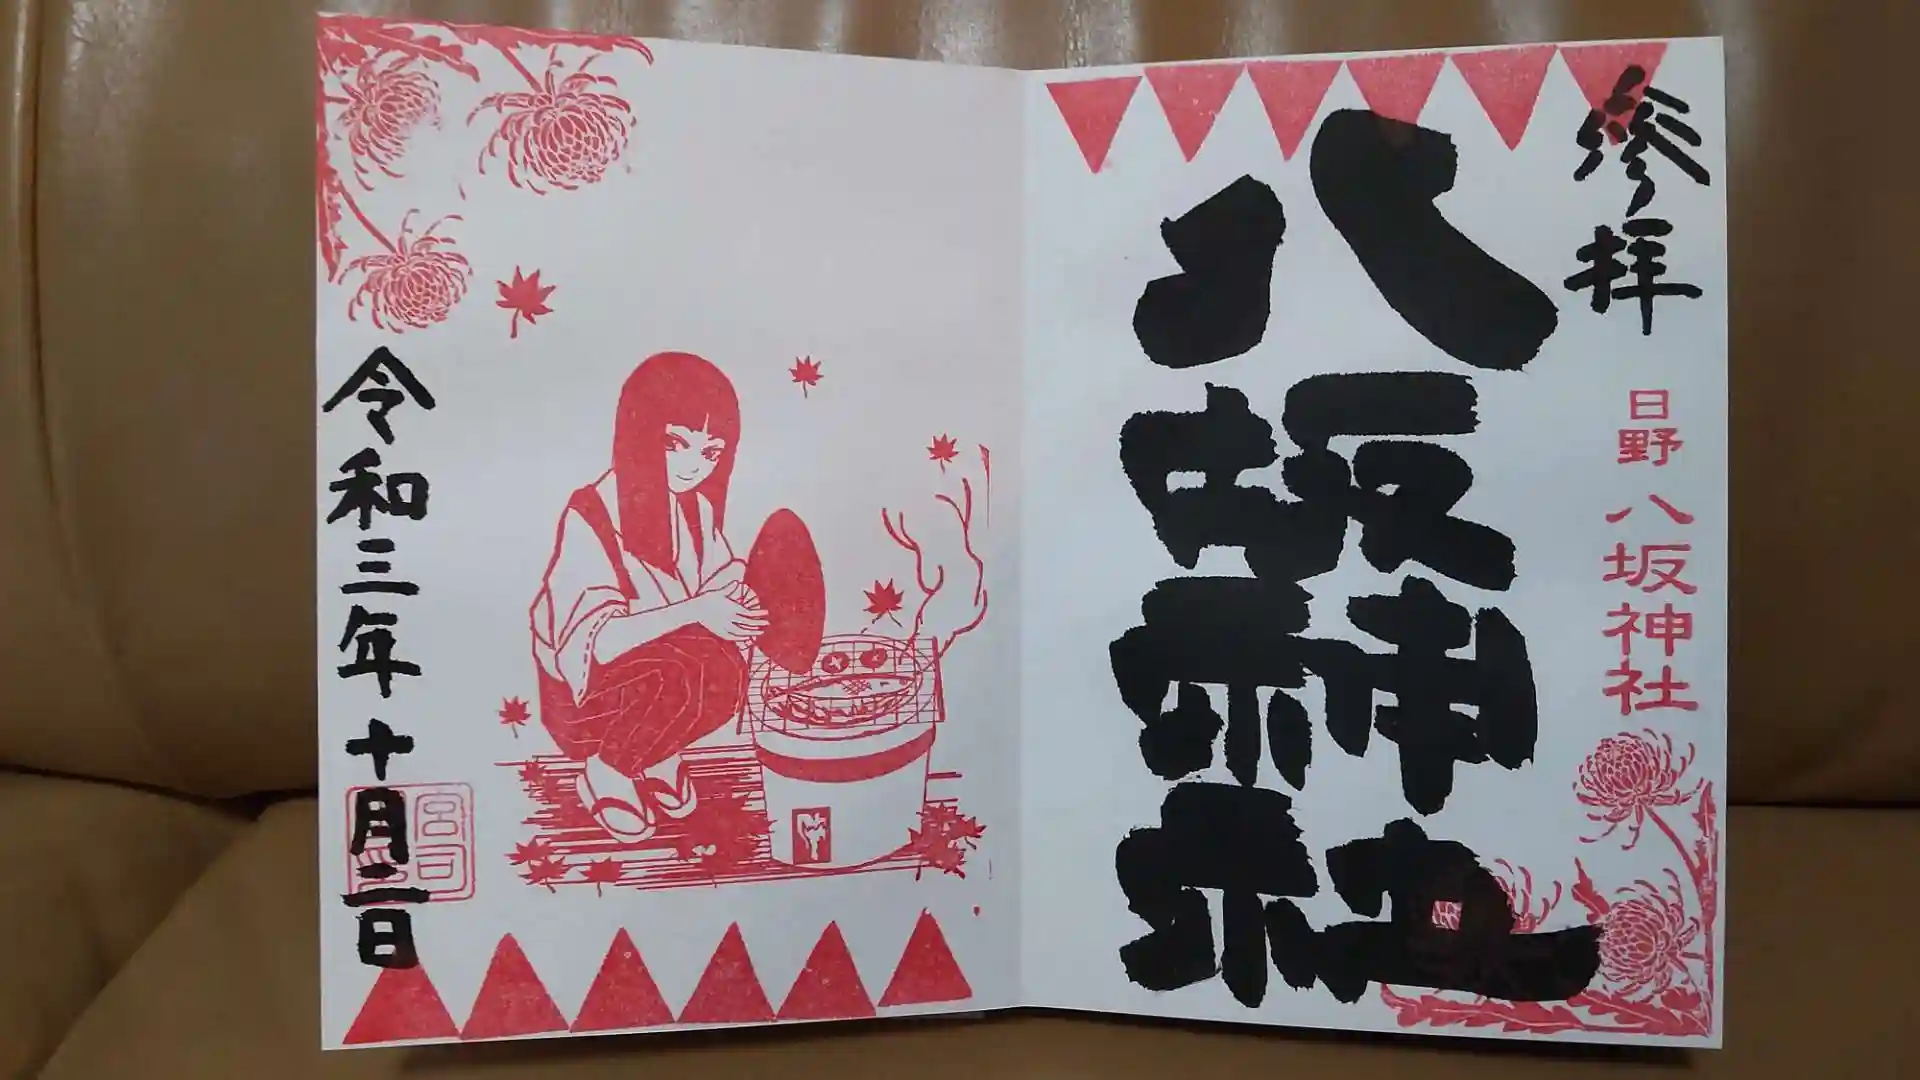 参拝
日野 八坂神社
八坂神社
令和三年十月二日
宮司